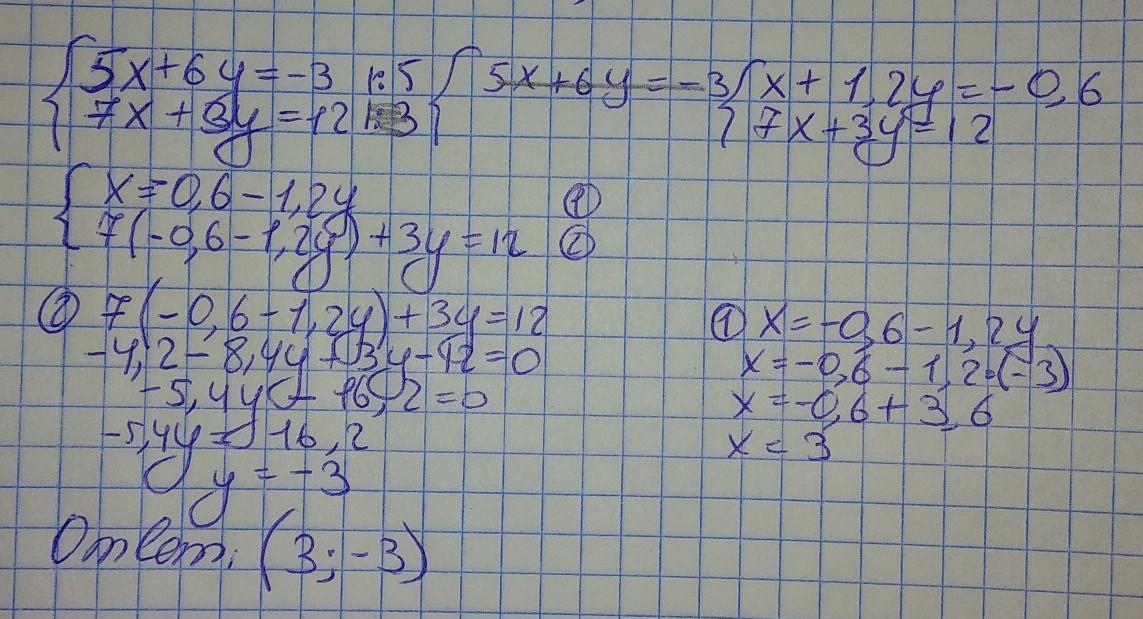 5x+6y=-3 |:5 5x+6y=-3 x+1,2y=-0,6
7x+3y=12 |:3 7x+3y=12
x=-0,6-1,2y ①
7(-0,6-1,2y)+3y=12 ②
② 7(-0,6-1,2y)+3y=12
-4,2-8,4y+3y-12=0
-5,4y-16,2=0
-5,4y=16,2
y=-3
① x=-0,6-1,2y
x=-0,6-1,2·(-3)
x=-0,6+3,6
x=3
Ответ: (3;-3)